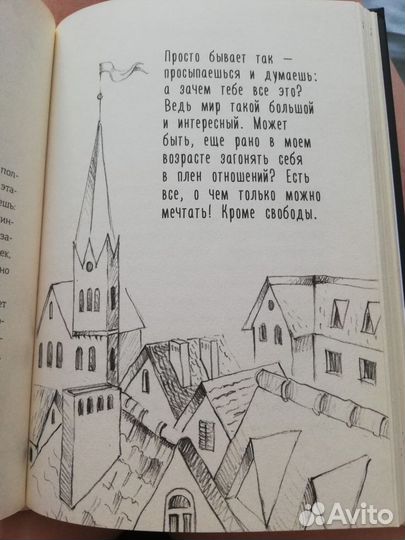 Просто бывает так —
просыпаешься и думаешь:
а зачем тебе все это?
Ведь мир такой большой
и интересный. Может
быть, еще рано в моем
возрасте загонять себя
в плен отношений? Есть
все, о чем только можно
мечтать! Кроме свободы.
Avito